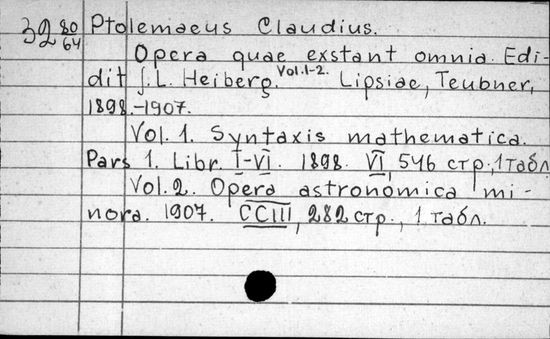 32 80/64 Ptolemaeus Claudius.
Opera quae exstant omnia. Edi-
dit J.L. Heiberg. Vol.1-2. Lipsiae, Teubner,
1898.-1907.
Vol. 1. Syntaxis mathematica.
Pars 1. Libr. I-VI. 1898. VI, 546 стр., 1 табл
Vol. 2. Opera astronomica mi-
nora. 1907. CCIII, 282 стр., 1 табл.